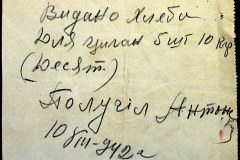 Видано Хлеба
Для цилан 5 шт 10 кгр
(Десят.)
Получіл Антон
10/VIII-942 г